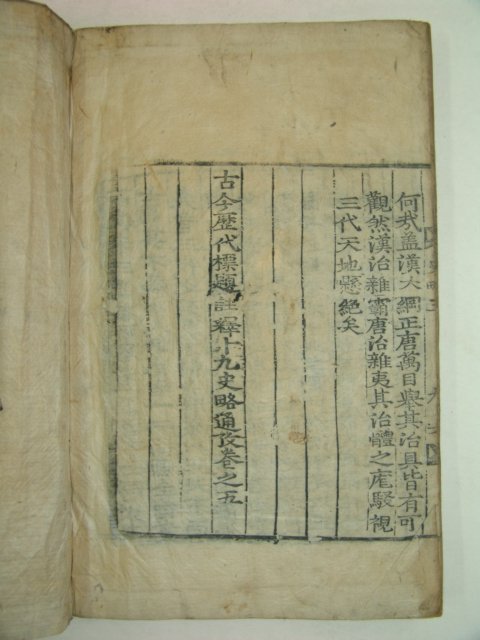 何哉盖漢大綱正唐萬目擧其治具皆有可
觀然漢治雜霸唐治雜夷其治體之尨駁視
三代天地懸絶矣
古今歷代標題註釋十九史略通攷卷之五